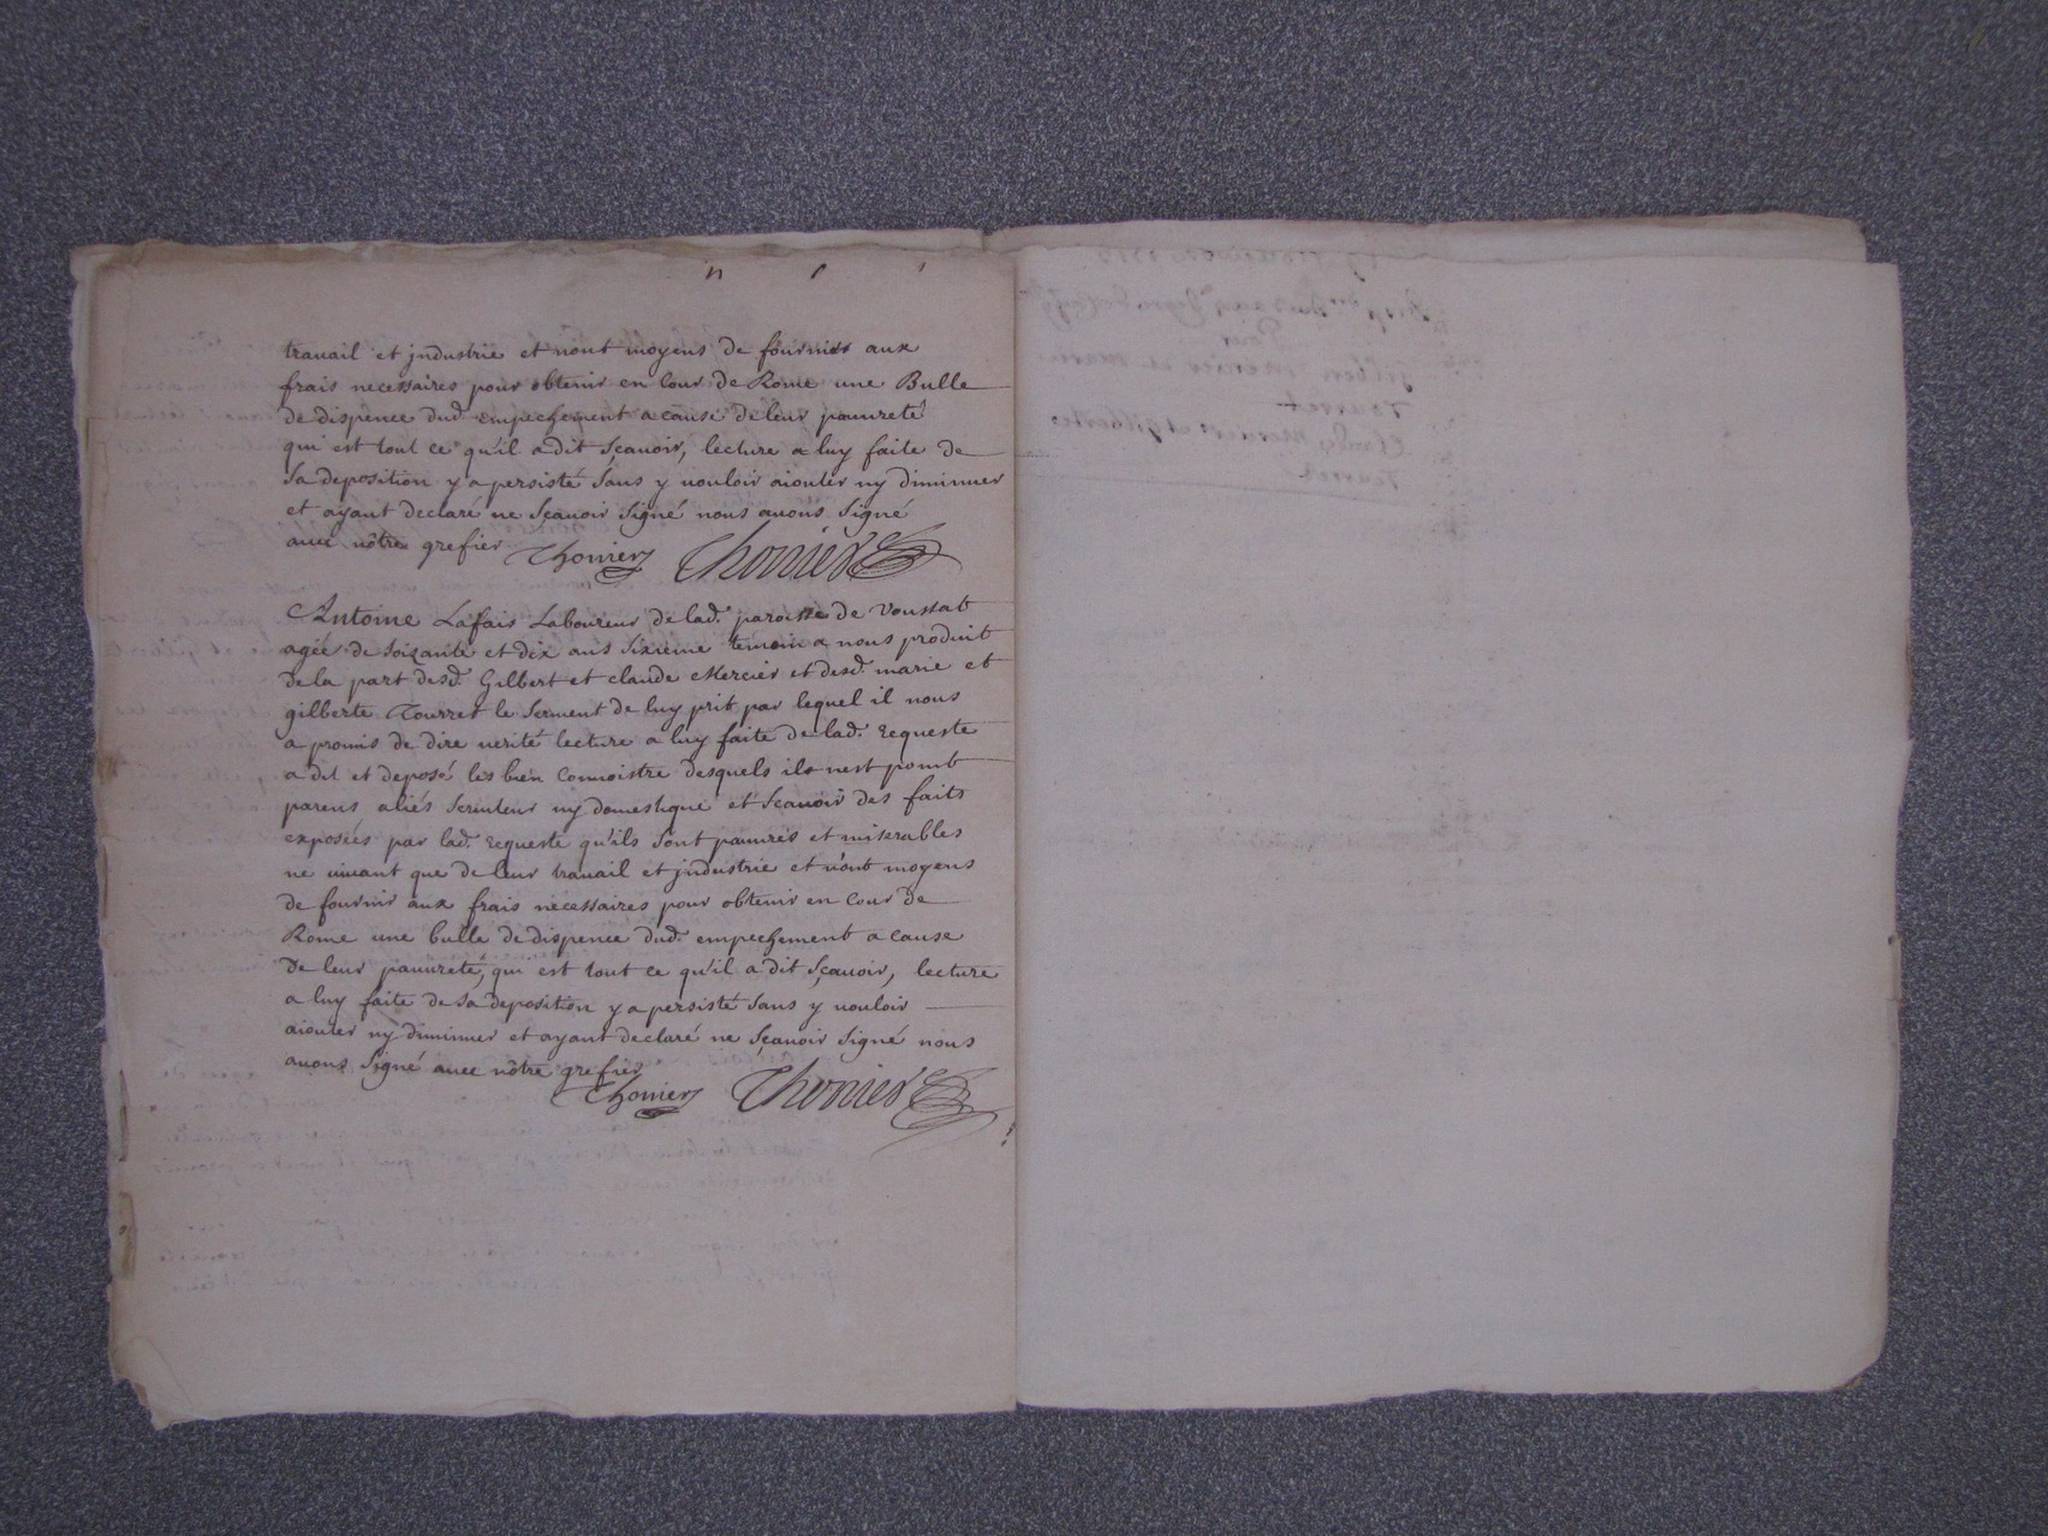 travail et jndustrie et nont moyens de fournier aux
frais necessaires pour obtenir en Cour de Rome une Bulle
de dispence dud. empechement a cause de leur pauureté
qui est tout ce qu'il a dit sçauoir, lecture a luy faite de
sa deposition y a persisté sans y uouloir aiouter ny diminuer
et ayant declaré ne sçauoir signé nous auons signé
auec nôtre grefier Thonier Thonier
Antoine Lafais Laboureur de lad. paroisse de Voussat
agée de soixante et dix ans sixieme temoin a nous produit
de la part desd. Gilbert et claude Mercier et desd. marie et
gilberte Tourret le serment de luy prit par lequel il nous
a promis de dire uerité lecture a luy faite de lad. Requeste
a dit et deposé les bien Connoistre desquels ils nest point
parens aliés seruiteur ny domestique et sçauoir des faits
exposées par lad. Requeste qu'ils sont pauures et miserables
ne uiuant que de leur trauail et jndustrie et n'ont moyens
de fournir aux frais necessaires pour obtenir en Cour de
Rome une bulle de dispence dud. empechement a cause
de leur pauureté, qui est tout ce qu'il a dit sçauoir, lecture
a luy faite de sa deposition y a persisté sans y uouloir
aiouter ny diminuer et ayant declaré ne sçauoir signé nous
auons signé auec nôtre grefier
Thonier Thonier